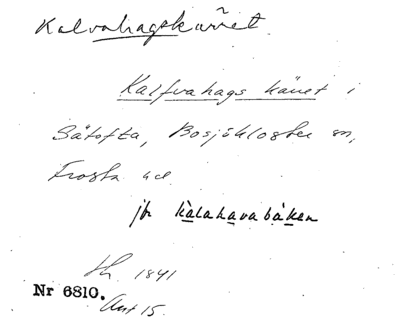 Kalvahagskärret
Kalfvahags käret i
Sätofta, Bosjökloster sn,
Frosta hd
jfr kàlahavabákan
1841
Nr 6810.
Ant 15.